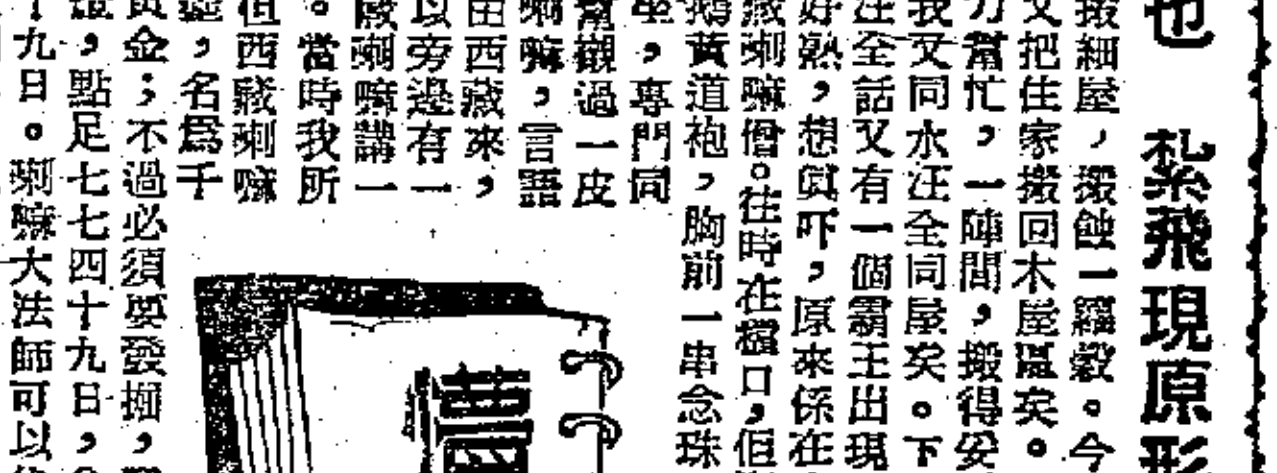 也 紮飛現原形
搬細屋，搬蝕一籮穀。今
又把住家搬回木屋區矣。
力幫忙，一陣間，搬得妥
我又同水汪全同屋矣。下
汪全話又有一個霸王出現
好熟，想眞吓，原來係在
藏喇嘛僧。往時在檔口，但
鵝黃道袍，胸前一串念珠
坐，專門同
幫襯過一皮
喇嘛，言語
由西藏來，
以旁邊有一
藏喇嘛講一
。當時我所
但西藏喇嘛
，名爲千
黃金；不過必須要發掘，
，點足七七四十九日，
十九日。喇嘛大法師可以